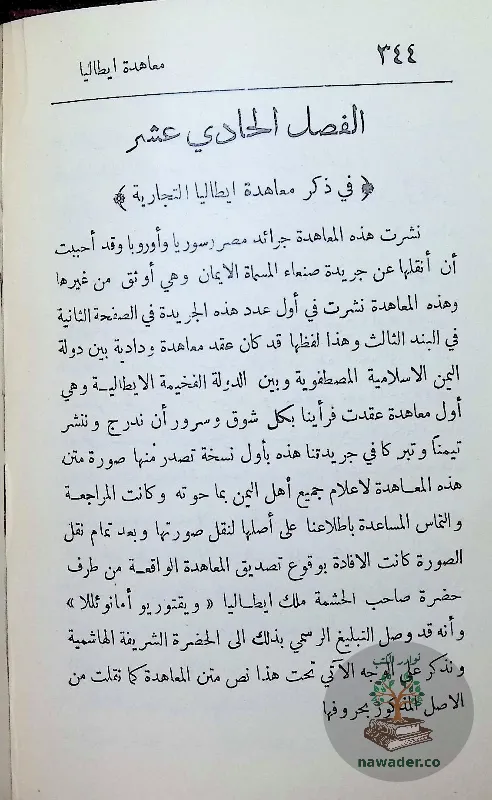 ٣٤٤
معاهدة ايطاليا
الفصل الحادي عشر
﴿ في ذكر معاهدة ايطاليا التجارية ﴾
نشرت هذه المعاهدة جرائد مصر وسوريا وأوروبا وقد أحببت
أن أنقلها عن جريدة صنعاء المسماة الايمان وهي أوثق من غيرها
وهذه المعاهدة نشرت في أول عدد هذه الجريدة في الصفحة الثانية
في البند الثالث وهذا لفظها قد كان عقد معاهدة ودادية بين دولة
اليمن الاسلامية المصطفوية وبين الدولة الفخيمة الايطالية وهي
أول معاهدة عقدت فرأينا بكل شوق وسرور أن ندرج وننشر
تيمنا وتبركا في جريدتنا هذه بأول نسخة تصدر منها صورة متن
هذه المعاهدة لاعلام جميع أهل اليمن بما حوته وكانت المراجعة
والتماس المساعدة باطلاعنا على أصلها لنقل صورتها وبعد تمام نقل
الصورة كانت الافادة بوقوع تصديق المعاهدة الواقعة من طرف
حضرة صاحب الحشمة ملك ايطاليا « ويقتوريو أمانوئللا »
وأنه قد وصل التبليغ الرسمي بذلك الى الحضرة الشريفة الهاشمية
ونذكر على الوجه الآتي تحت هذا نص متن المعاهدة كما نقلت من
الاصل المذكور بحروفها
نوادر الكتب
nawader.co